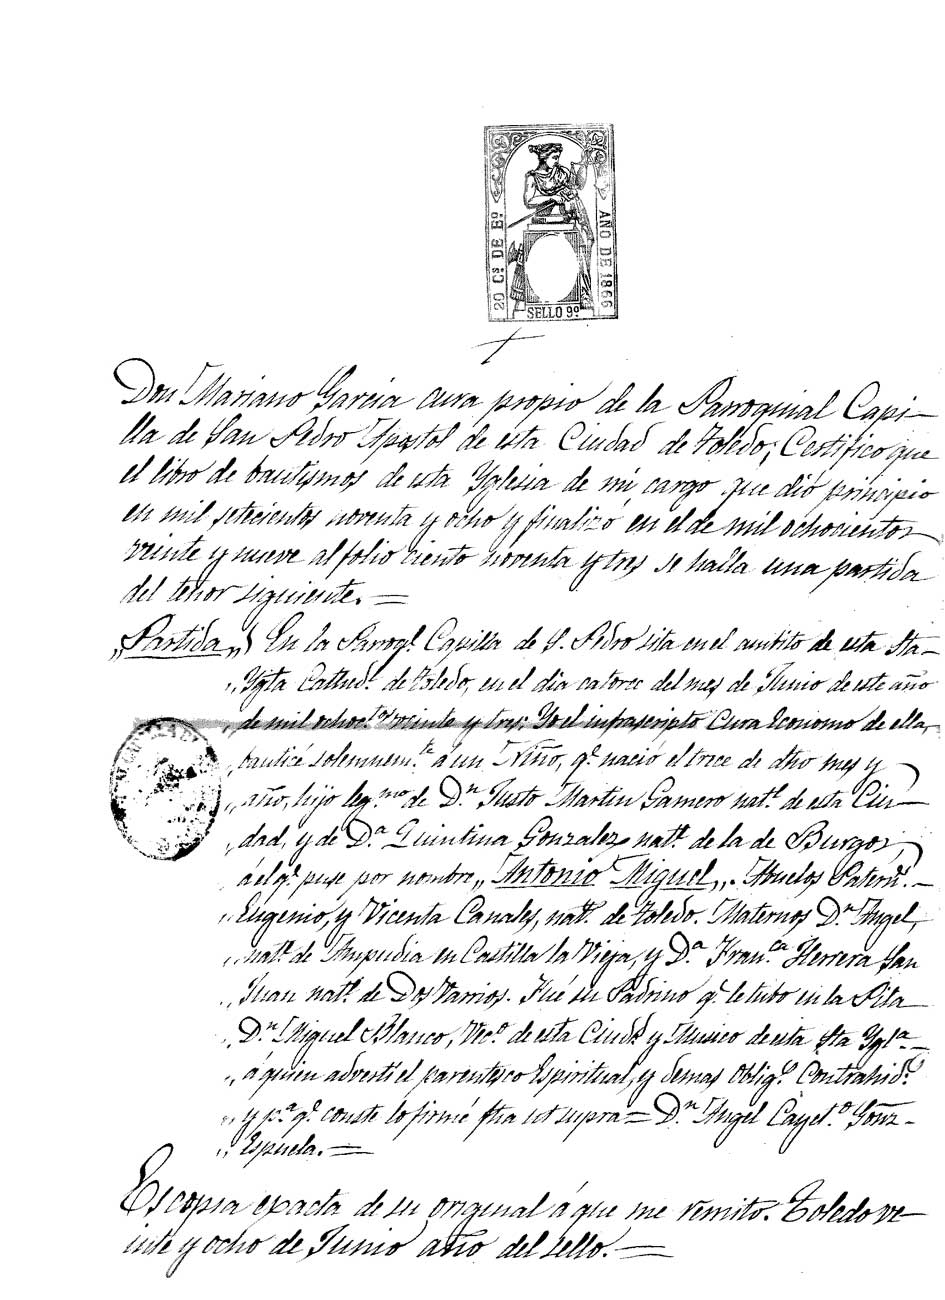 20 Cs DE Eº
AÑO DE 1866
SELLO 9º
Don Mariano Garcia cura propio de la Parroquial Capi-
lla de San Pedro Apostol de esta Ciudad de Toledo; Certifico que
el libro de bautismos de esta Yglesia de mi cargo que dió principio
en mil setecientos noventa y ocho y finalizó en el de mil ochocientos
veinte y nueve al folio ciento noventa y tres se halla una partida
del tenor siguiente. =
„Partida„ En la Parroql. Capilla de S. Pedro sita en el ambito de esta Sta-
„ Ygla Cathedl. de Toledo, en el dia catorce del mes de Junio de este año
„ de mil ochoctos veinte y tres: Yo el infrascripto Cura Economo de ella,
„ bauticé solemnemte. á un Niño, qe. nació el trece de dho mes y
„ año, hijo legmo. de Dn. Justo Martin Gamero natl. de esta Ciu-
„ dad, y de Da. Quintina Gonzalez natl. de la de Burgos,
„ á el qe. puse por nombre „Antonio Miguel„. Abuelos Paterns.-
„ Eugenio, y Vicenta Canales, natls. de Toledo. Maternos Dn. Angel,
„ natl. de Ampudia en Castilla la Vieja, y Da. Franca. Herrera San
„ Juan natl. de Dos Varrios. Fué su Padrino qe. le tubo en la Pila
„ Dn. Miguel Blanco, Veco. de esta Ciudd y Musico de esta Sta Ygla.-
„ á quien advertí el parentesco Espiritual, y demas obligs. Contrahids.
„ y pa. qe. conste lo firmé fha ut supra = Dn. Angel Cayeto. Gonz-
„ Espuela. =
Es copia exacta de su original á que me remito. Toledo ve-
inte y ocho de Junio año del sello. =